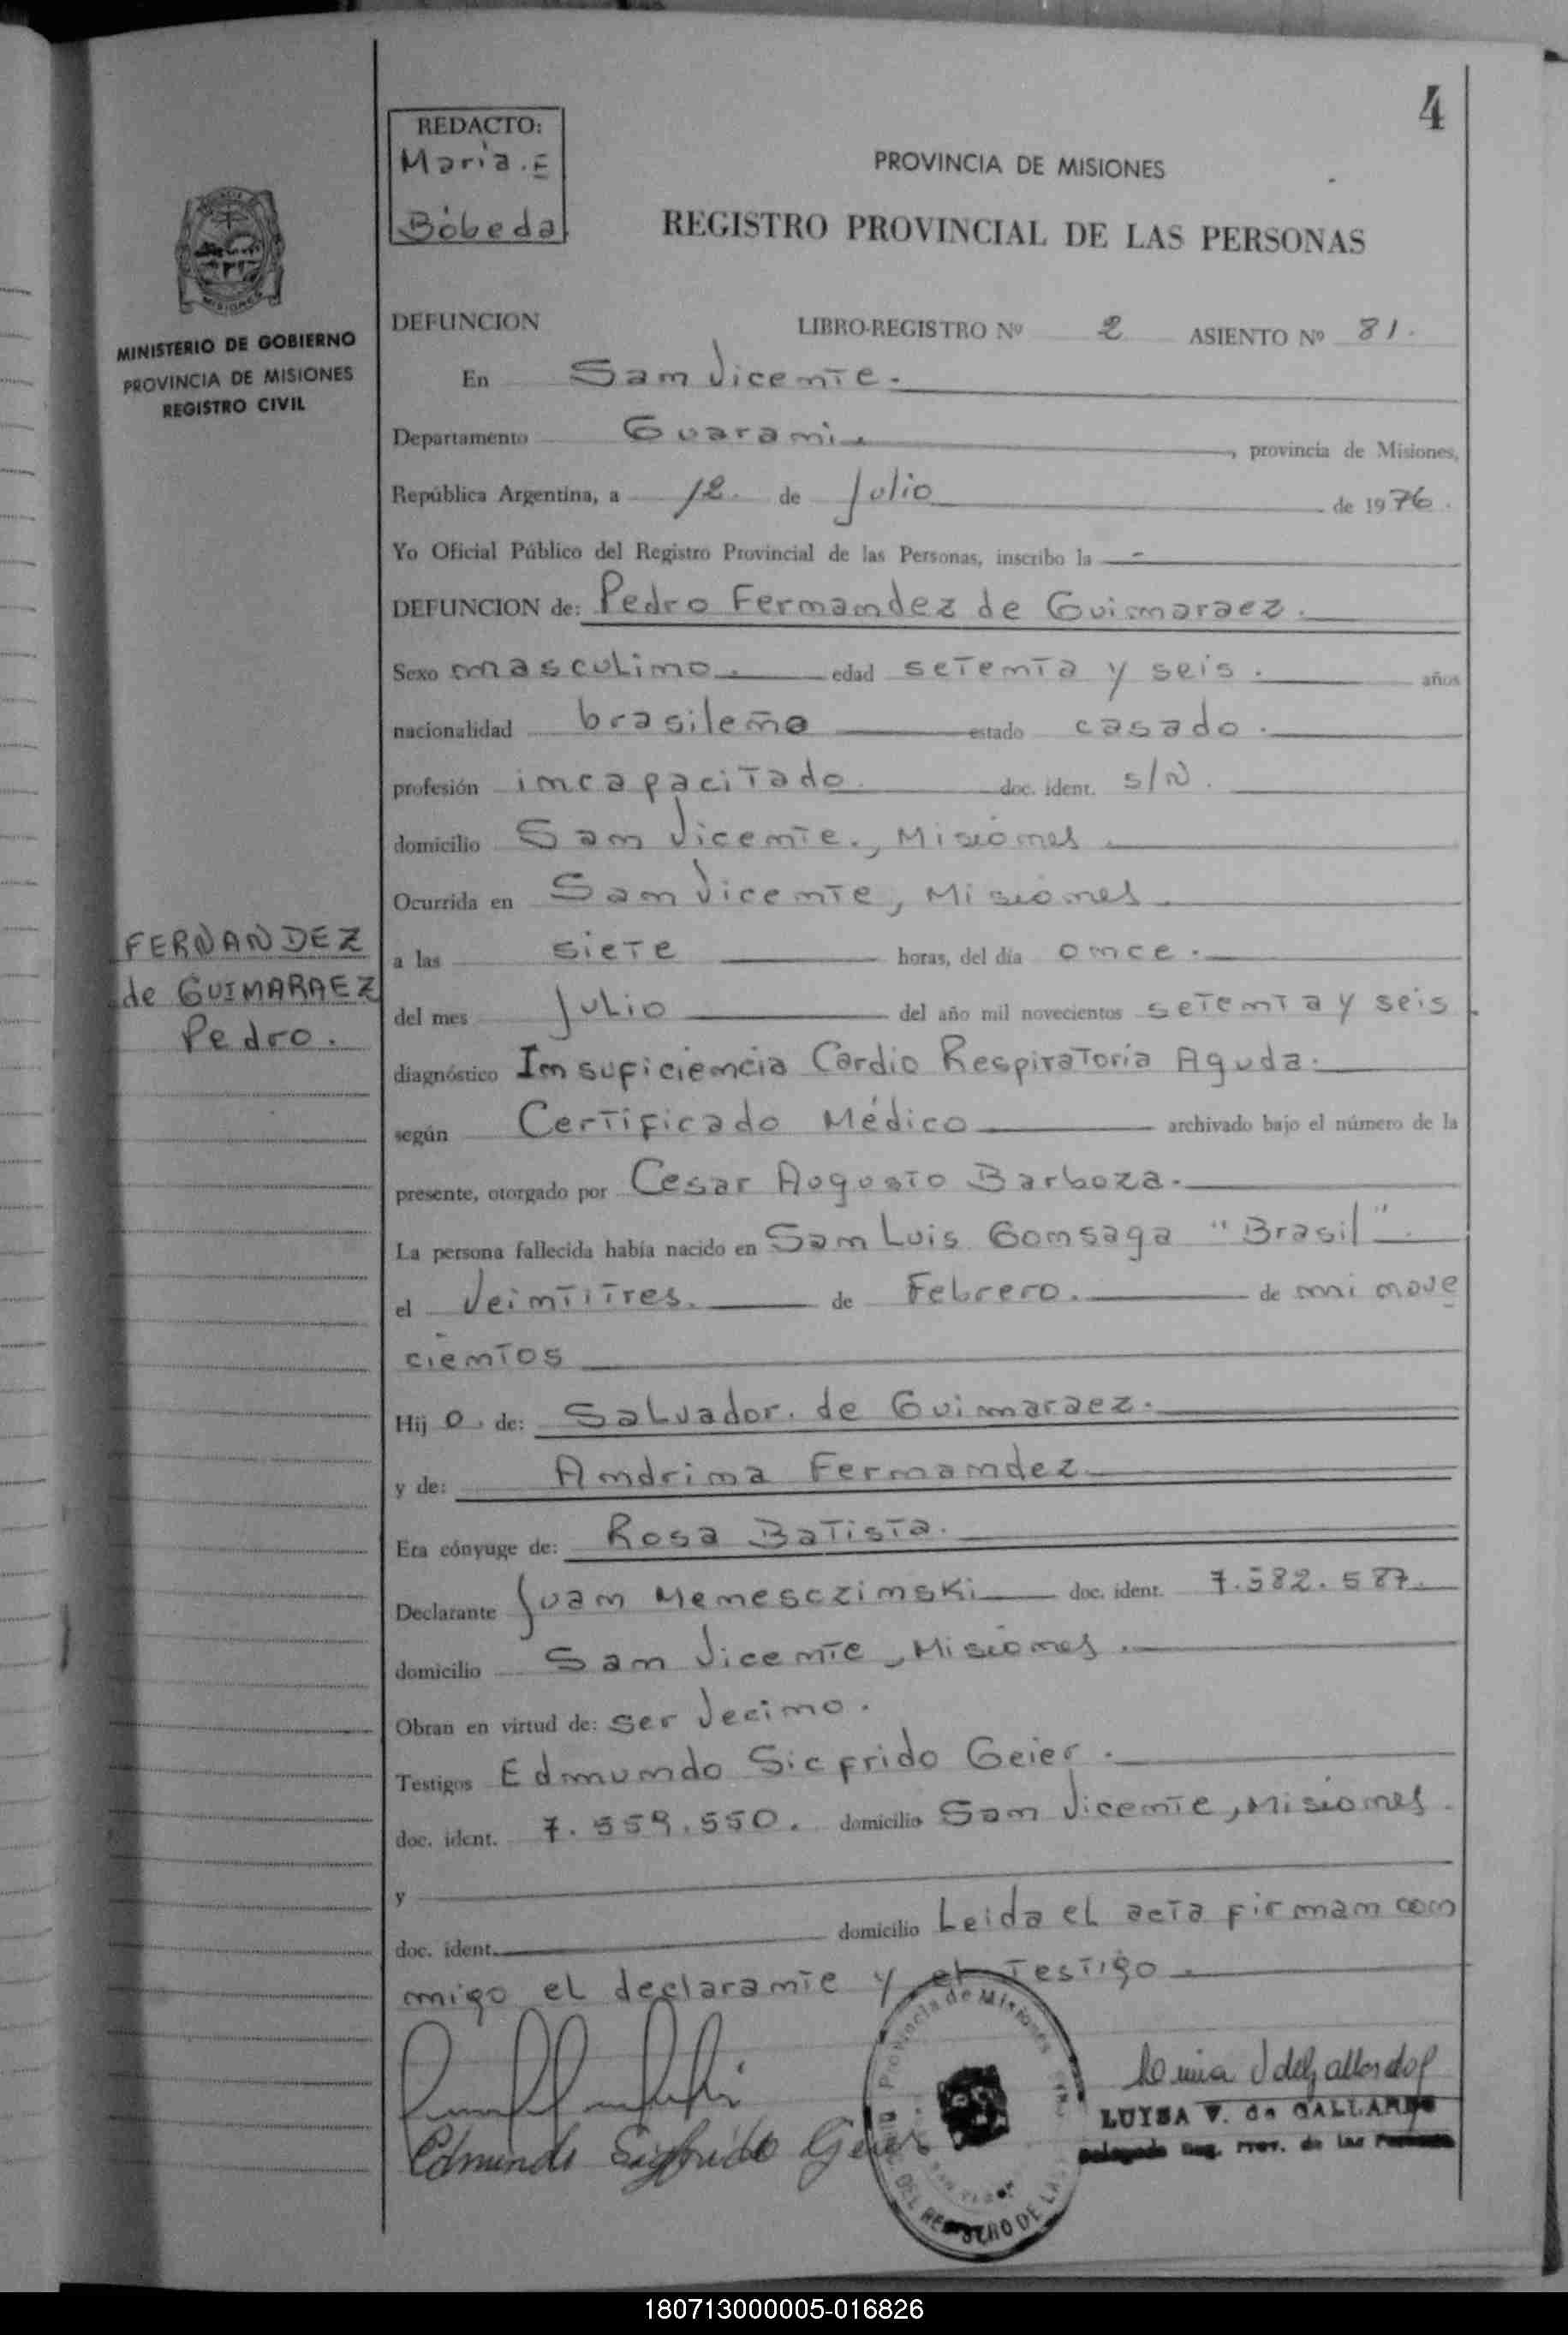 4
REDACTO:
Maria. E
Bóbeda
PROVINCIA DE MISIONES
REGISTRO PROVINCIAL DE LAS PERSONAS
MINISTERIO DE GOBIERNO
PROVINCIA DE MISIONES
REGISTRO CIVIL
DEFUNCION LIBRO-REGISTRO Nº 2 ASIENTO Nº 81.
En San Vicente.
Departamento Guarani, provincia de Misiones,
República Argentina, a 12. de Julio de 1976.
Yo Oficial Público del Registro Provincial de las Personas, inscribo la
DEFUNCION de: Pedro Fernandez de Guimaraez.
Sexo masculino. edad setenta y seis. años
nacionalidad brasileño estado casado.
profesión incapacitado. doc. ident. s/N.
domicilio San Vicente., Misiones
Ocurrida en San Vicente, Misiones
a las siete horas, del día once.
del mes Julio del año mil novecientos setenta y seis.
diagnóstico Insuficiencia Cardio Respiratoria Aguda.
según Certificado Médico archivado bajo el número de la
presente, otorgado por Cesar Augusto Barboza.
La persona fallecida había nacido en San Luis Gonsaga "Brasil".
el Veintitres. de Febrero. de mi nove
cientos
Hijo. de: Salvador. de Guimaraez.
y de: Andrina Fernandez
Era cónyuge de: Rosa Batista.
Declarante Juan Menesczinski doc. ident. 7.582.587.
domicilio San Vicente, Misiones.
Obran en virtud de: ser Vecino.
Testigos Edmundo Sicfrido Geier.
doc. ident. 7.559.550. domicilio San Vicente, Misiones.
y
doc. ident. domicilio Leida el acta firman con
migo el declarante y el testigo.
FERNANDEZ
de GUIMARAEZ
Pedro.
Edmundo Sigfrido Geier
Provincia de Misiones
DEL REGISTRO DE LA
LUYSA V. de GALLARDO
Delegada Reg. Prov. de las Personas
180713000005-016826